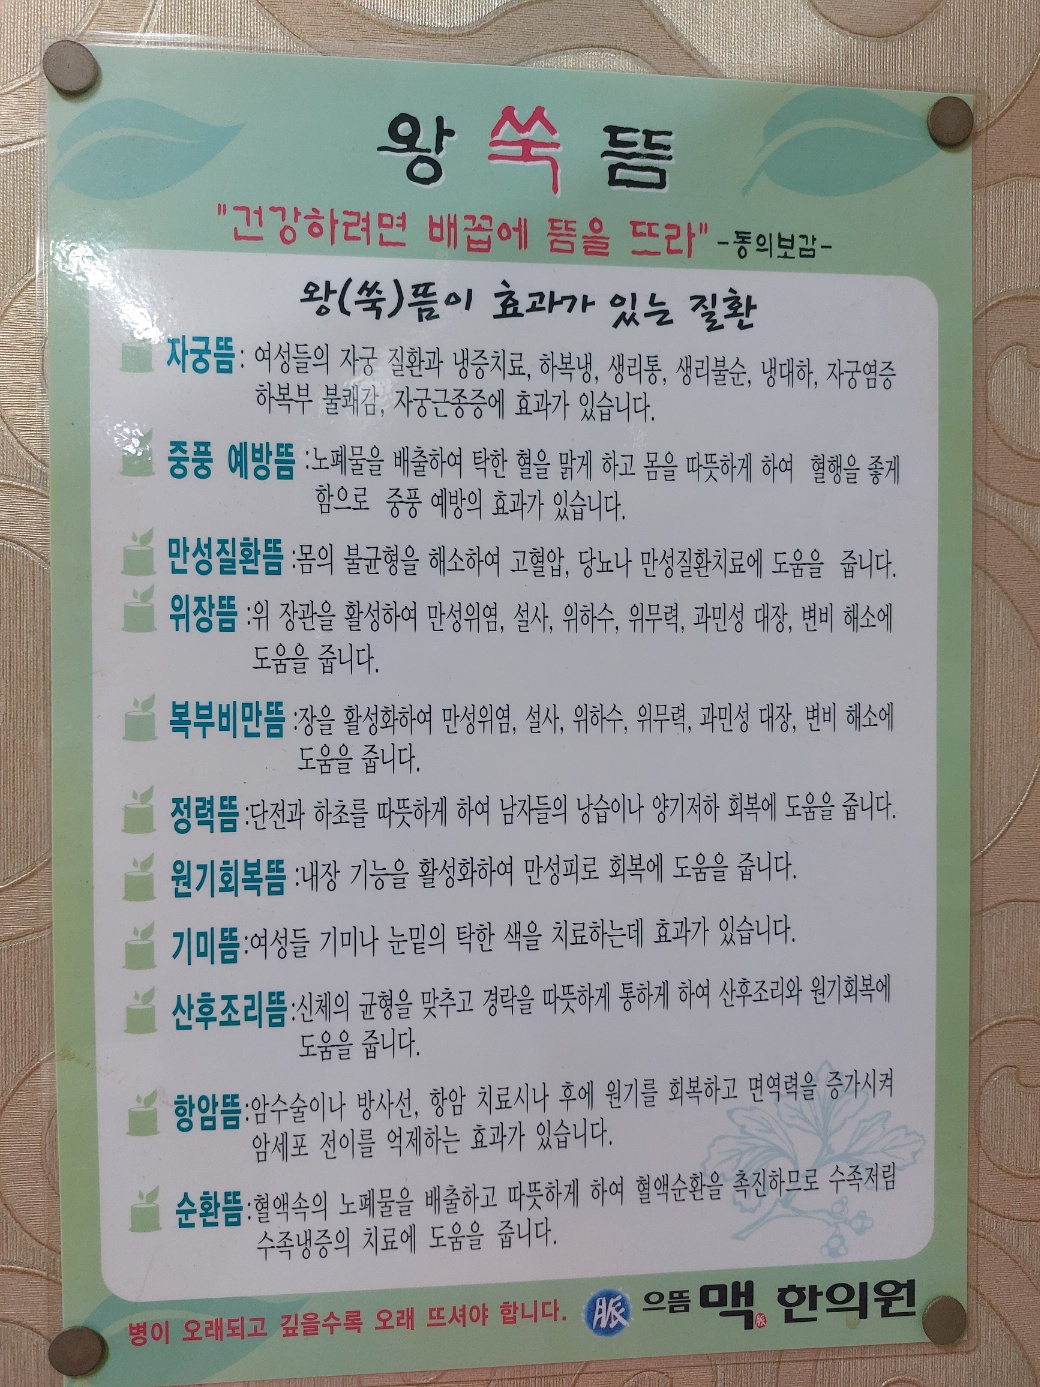 왕 쑥 뜸
"건강하려면 배꼽에 뜸을 뜨라" -동의보감-
왕(쑥)뜸이 효과가 있는 질환
자궁뜸: 여성들의 자궁 질환과 냉증치료, 하복냉, 생리통, 생리불순, 냉대하, 자궁염증
하복부 불쾌감, 자궁근종증에 효과가 있습니다.
중풍 예방뜸 :노폐물을 배출하여 탁한 혈을 맑게 하고 몸을 따뜻하게 하여 혈행을 좋게
함으로 중풍 예방의 효과가 있습니다.
만성질환뜸 :몸의 불균형을 해소하여 고혈압, 당뇨나 만성질환치료에 도움을 줍니다.
위장뜸 :위 장관을 활성하여 만성위염, 설사, 위하수, 위무력, 과민성 대장, 변비 해소에
도움을 줍니다.
복부비만뜸 :장을 활성화하여 만성위염, 설사, 위하수, 위무력, 과민성 대장, 변비 해소에
도움을 줍니다.
정력뜸 :단전과 하초를 따뜻하게 하여 남자들의 낭습이나 양기저하 회복에 도움을 줍니다.
원기회복뜸 :내장 기능을 활성화하여 만성피로 회복에 도움을 줍니다.
기미뜸 :여성들 기미나 눈밑의 탁한 색을 치료하는데 효과가 있습니다.
산후조리뜸 :신체의 균형을 맞추고 경락을 따뜻하게 통하게 하여 산후조리와 원기회복에
도움을 줍니다.
항암뜸 :암수술이나 방사선, 항암 치료시나 후에 원기를 회복하고 면역력을 증가시켜
암세포 전이를 억제하는 효과가 있습니다.
순환뜸 :혈액속의 노폐물을 배출하고 따뜻하게 하여 혈액순환을 촉진하므로 수족저림
수족냉증의 치료에 도움을 줍니다.
병이 오래되고 깊을수록 오래 뜨셔야 합니다. 脈 으뜸 맥 脈 한의원